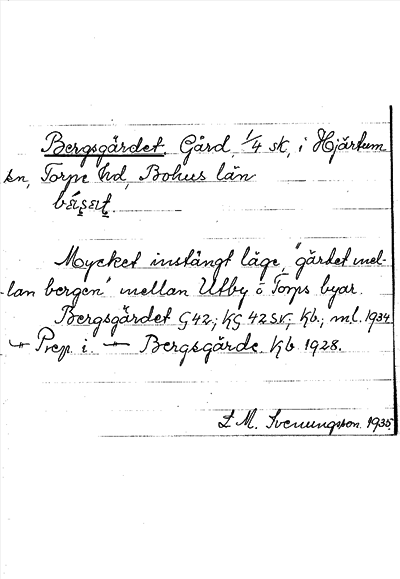 Bergsgärdet. Gård, 1/4 sk, i Hjärtum
sn, Torpe hd, Bohus län
Mycket instängt läge, "gärdet mel-
lan bergen" mellan Utby o Torps byar.
Bergsgärdet G 42; KG 42 sv; Kb.; ml. 1934
Prep. i. Bergsgärde. Kb 1928.
L M. Svenungsson. 1935.